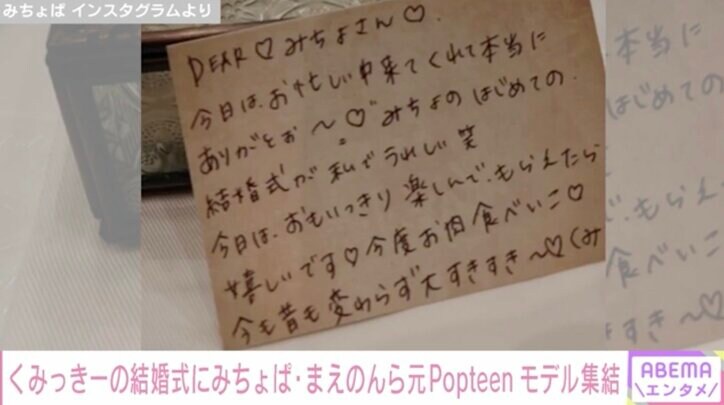 みちょぱ インスタグラムより
DEAR♡みちょさん♡.
今日は、お忙しい中来てくれて本当に
ありがとお〜♡みちょのはじめての.
結婚式が私でうれしい笑
今日は、おもいっきり楽しんで、もらえたら
嬉しいです♡今度お肉食べいこ♡
今も昔も変わらず大すきすき〜♡(み
本当に
はじめての
もらえたら
食べいこ♡
すき〜♡(
くみっきーの結婚式にみちょぱ・まえのんら元Popteen モデル集結
ABEMA
エンタメ